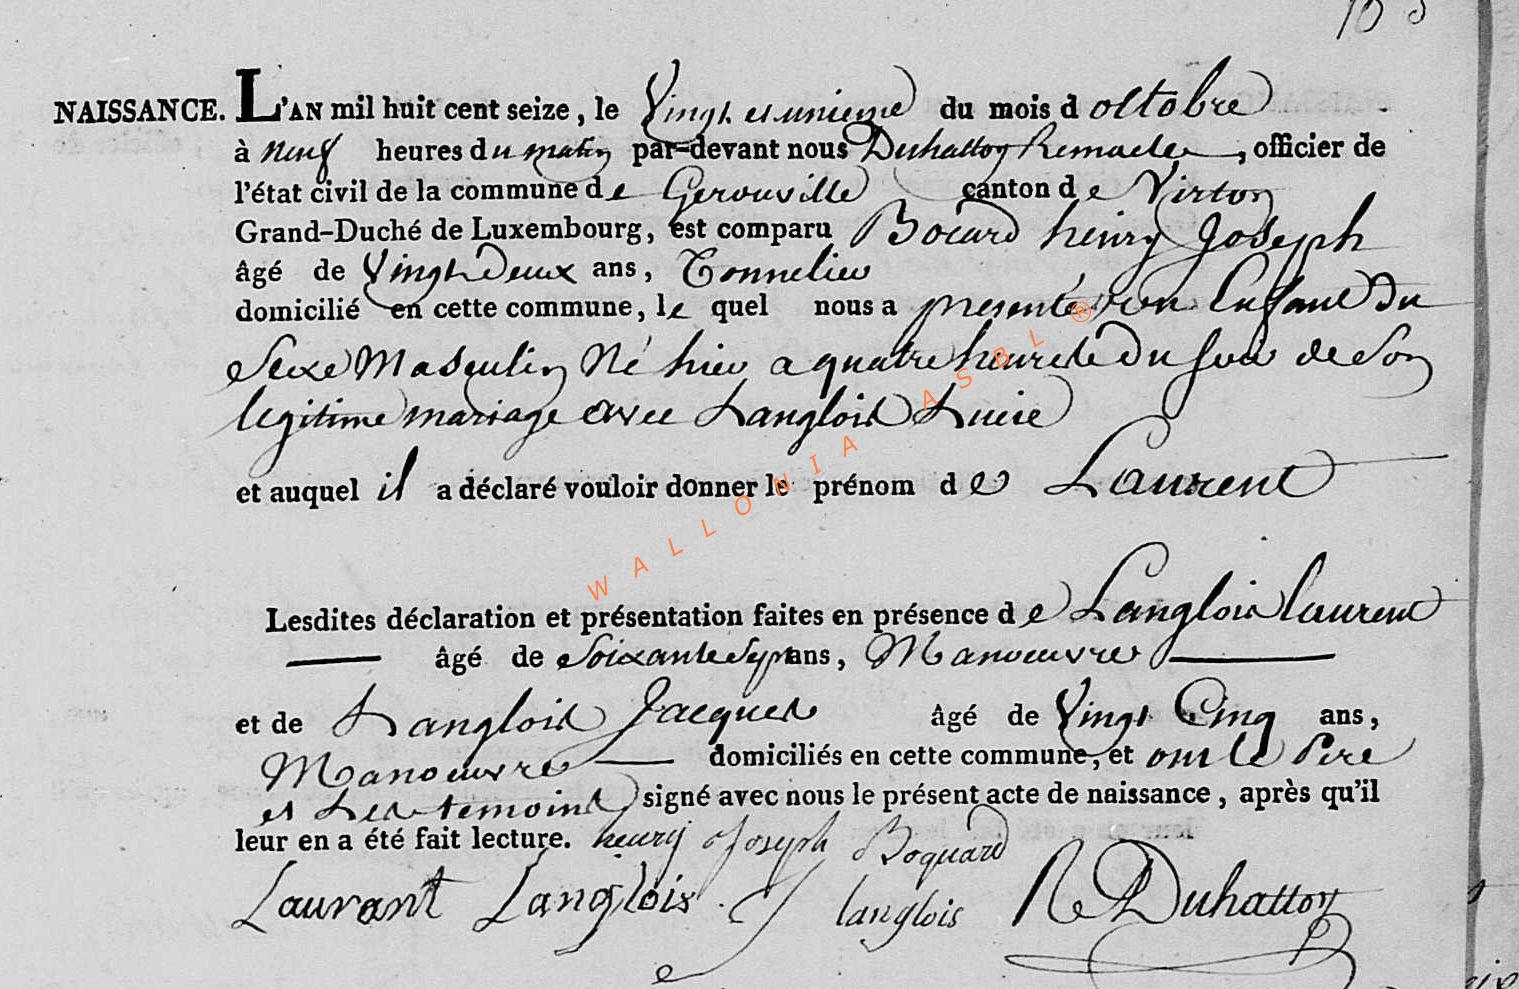 NAISSANCE. L'AN mil huit cent seize, le Vingt et unieme du mois d octobre
à neuf heures du matin par-devant nous Duhattoy Remacle, officier de
l'état civil de la commune de Gerouville canton de Virton
Grand-Duché de Luxembourg, est comparu Bocard henry Joseph
âgé de Vingt Deux ans, Tonnelier
domicilié en cette commune, le quel nous a presenté un Enfant Du
Sexe Masculin Né hier a quatre heures Du soir de Son
legitime mariage avec Langlois Lucie
et auquel il a déclaré vouloir donner le prénom de Laurent
Lesdites déclaration et présentation faites en présence de Langlois laurent
âgé de Soixante Sept ans, Manoeuvre
et de Langlois Jacques âgé de Vingt Cinq ans,
Manoeuvre domiciliés en cette commune, et ont le Pere
et Les temoins signé avec nous le présent acte de naissance, après qu'il
leur en a été fait lecture. henry Joseph Boquard
Laurant Langlois. J langlois R Duhattoy
WALLONIA ASBL ®